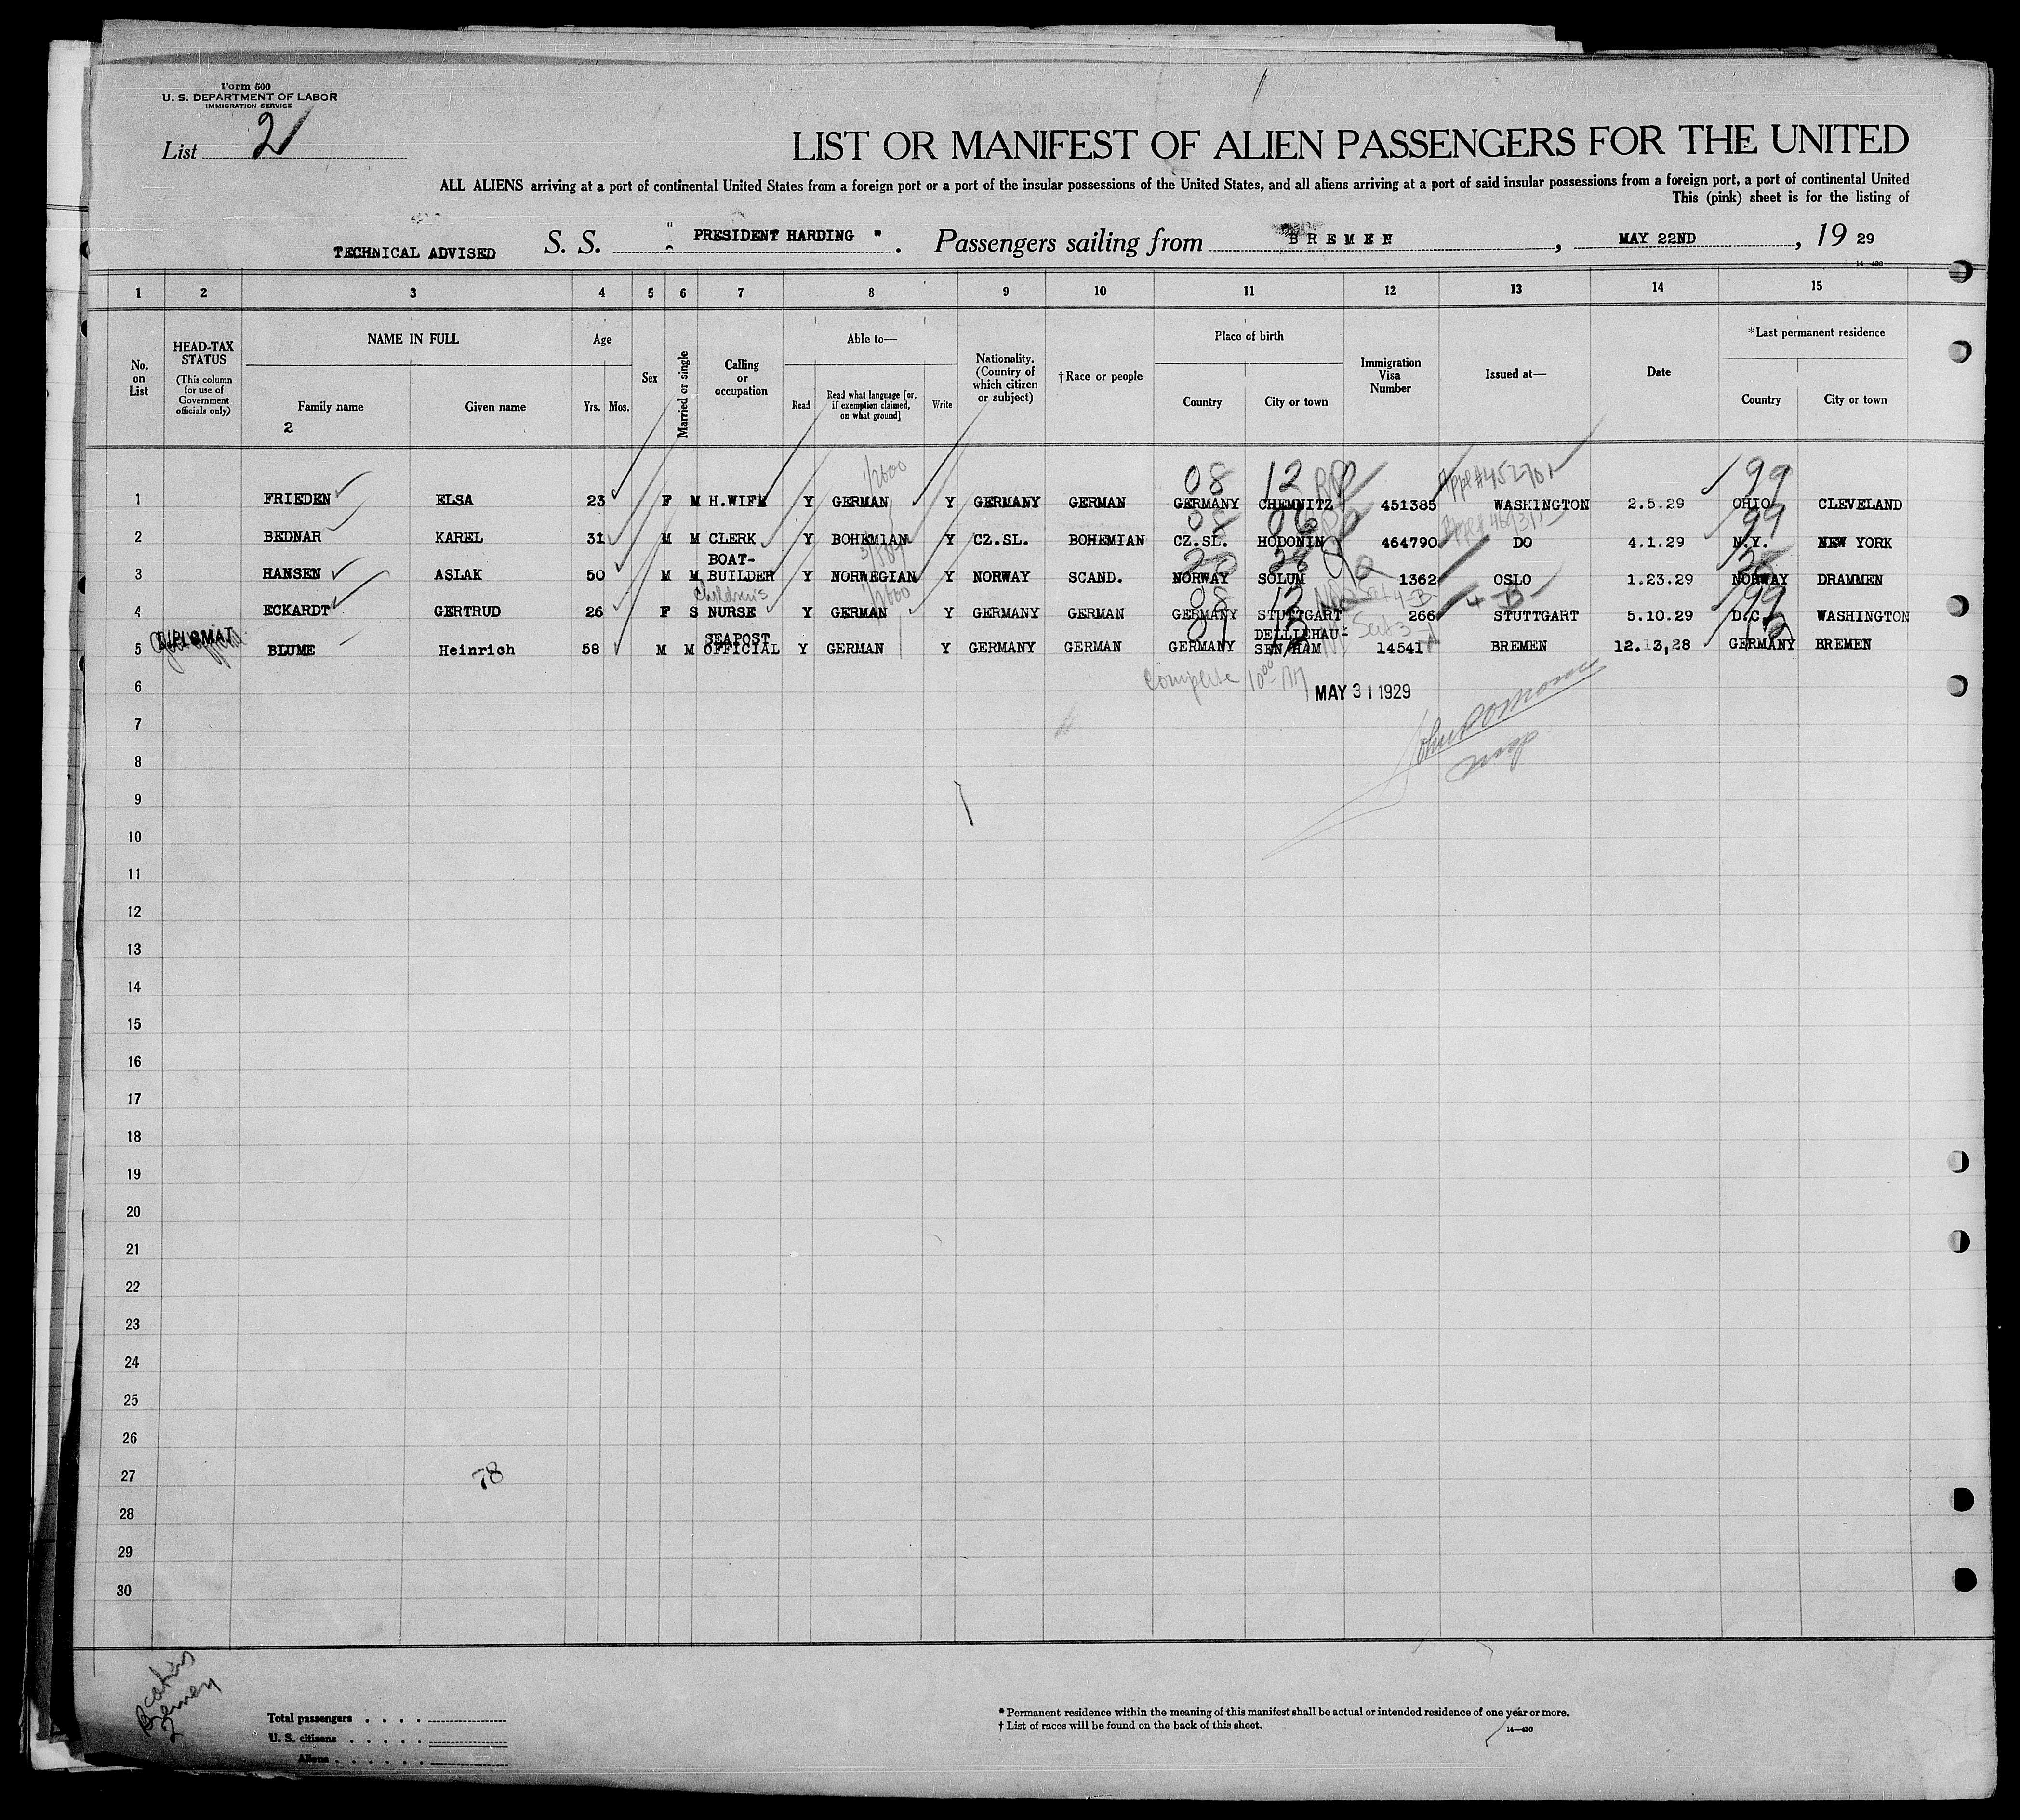 Form 500
U. S. DEPARTMENT OF LABOR
IMMIGRATION SERVICE
List 2
LIST OR MANIFEST OF ALIEN PASSENGERS FOR THE UNITED
ALL ALIENS arriving at a port of continental United States from a foreign port or a port of the insular possessions of the United States, and all aliens arriving at a port of said insular possessions from a foreign port, a port of continental United
This (pink) sheet is for the listing of
TECHNICAL ADVISED S. S. "PRESIDENT HARDING". Passengers sailing from BREMEN, MAY 22ND, 19 29
14-430
1 2 3 4 5 6 7 8 9 10 11 12 13 14 15
No. on List
HEAD-TAX STATUS (This column for use of Government officials only)
NAME IN FULL
Family name Given name
2
Age
Yrs. Mos.
Sex
Married or single
Calling or occupation
Able to—
Read
Read what language [or, if exemption claimed, on what ground]
Write
Nationality. (Country of which citizen or subject)
†Race or people
Place of birth
Country City or town
Immigration Visa Number
Issued at—
Date
*Last permanent residence
Country City or town
08 12 99
1 FRIEDEN ELSA 23 F M H.WIFE Y GERMAN Y GERMANY GERMAN GERMANY CHEMNITZ 451385 WASHINGTON 2.5.29 OHIO CLEVELAND
99
2 BEDNAR KAREL 31 M M CLERK Y BOHEMIAN Y CZ.SL. BOHEMIAN CZ.SL. HODONIN 464790 DO 4.1.29 N.Y. NEW YORK
3 HANSEN ASLAK 50 M M BOAT-BUILDER Y NORWEGIAN Y NORWAY SCAND. NORWAY SOLUM 1362 OSLO 1.23.29 NORWAY DRAMMEN
08 12 99
4 ECKARDT GERTRUD 26 F S Children's NURSE Y GERMAN Y GERMANY GERMAN GERMANY STUTTGART 266 STUTTGART 5.10.29 D.C. WASHINGTON
DIPLOMAT
5 BLUME Heinrich 58 M M SEAPOST OFFICIAL Y GERMAN Y GERMANY GERMAN GERMANY 14541 BREMEN 12.13,28 GERMANY BREMEN
Complete 10⁰⁰ AM
MAY 31 1929
6
7
8
9
10
11
12
13
14
15
16
17
18
19
20
21
22
23
24
25
26
27
78
28
29
30
Total passengers
U. S. citizens
Aliens
*Permanent residence within the meaning of this manifest shall be actual or intended residence of one year or more.
†List of races will be found on the back of this sheet.
14-430